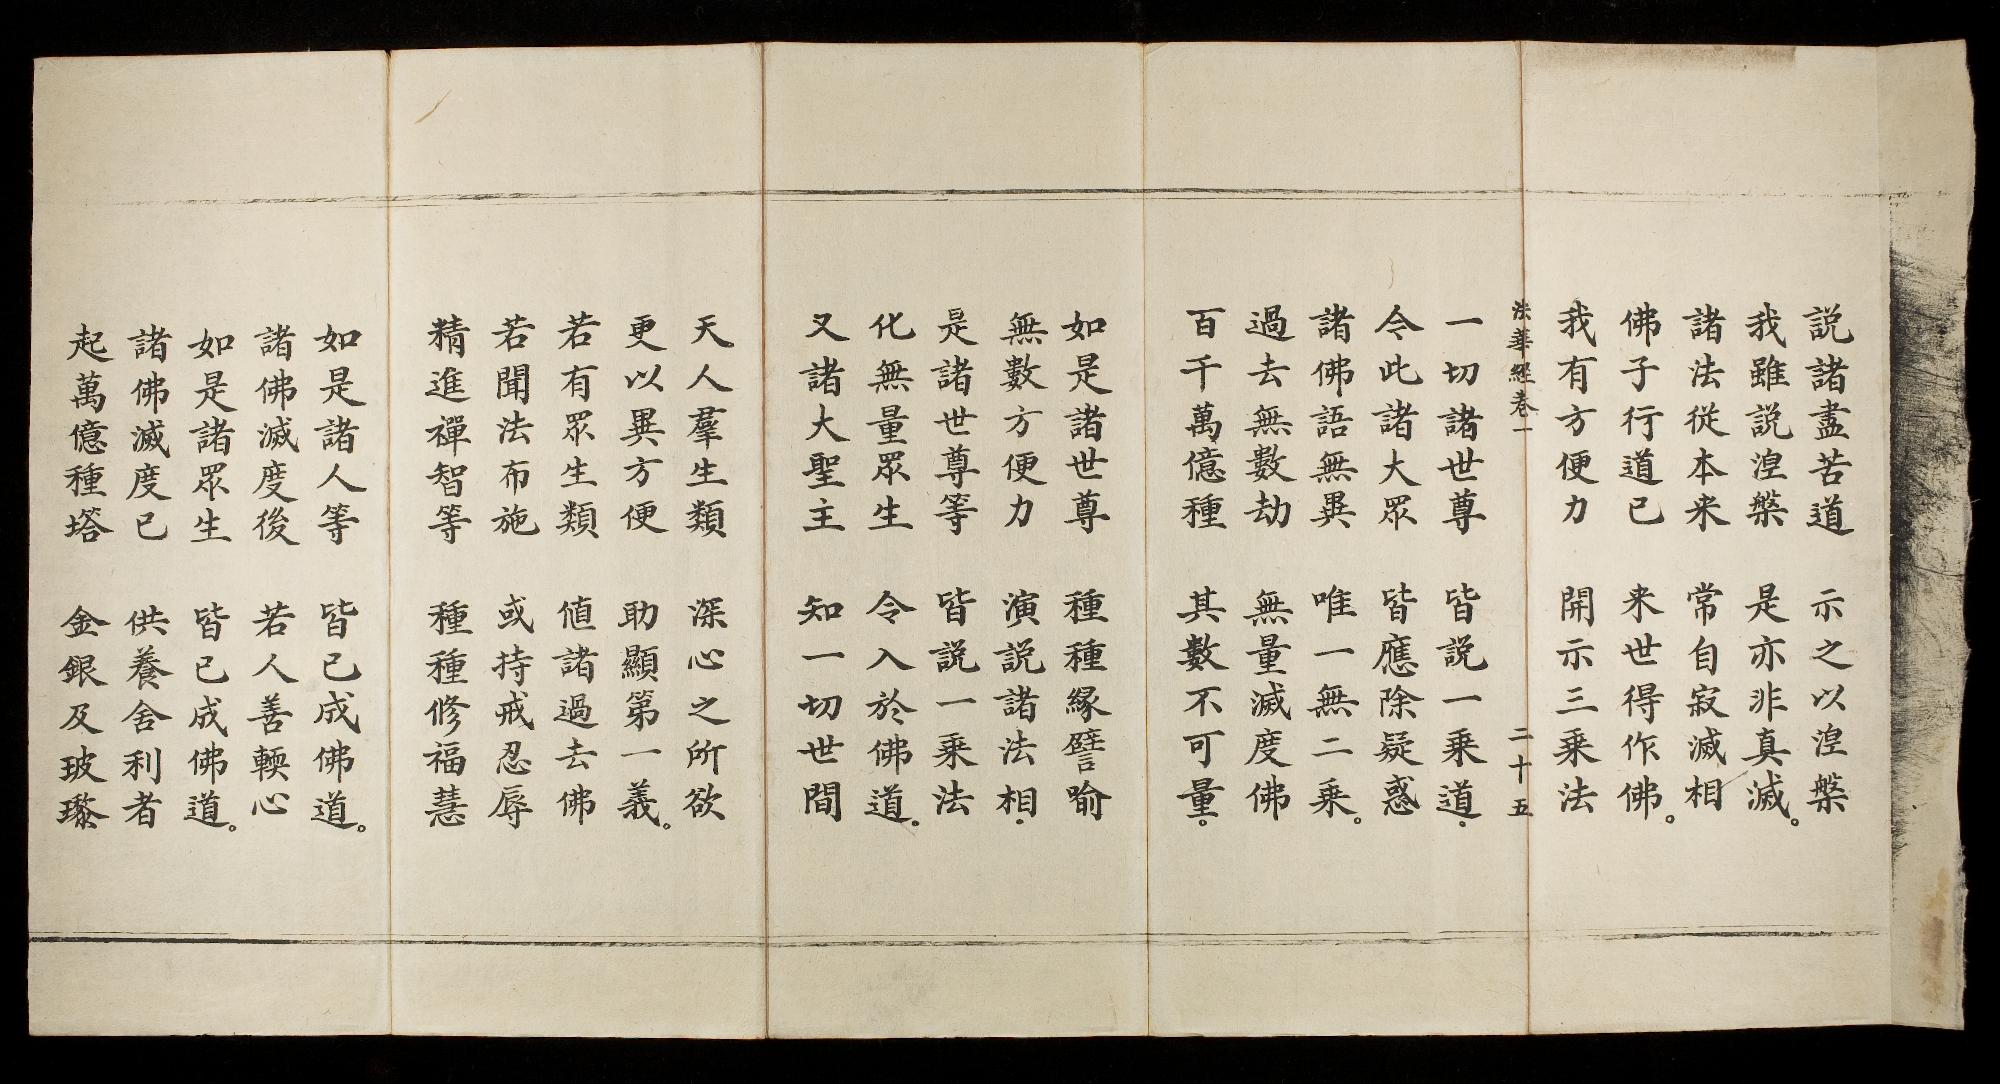 説諸盡苦道　示之以涅槃
我雖説涅槃　是亦非真滅。
諸法從本来　常自寂滅相
佛子行道已　来世得作佛。
我有方便力　開示三乗法
法華經卷一　二十五
一切諸世尊　皆説一乗道.
令此諸大眾　皆應除疑惑
諸佛語無異　唯一無二乗。
過去無數劫　無量滅度佛
百千萬億種　其數不可量。
如是諸世尊　種種緣譬喻
無數方便力　演説諸法相.
是諸世尊等　皆説一乗法
化無量眾生　令入於佛道.
又諸大聖主　知一切世間
天人羣生類　深心之所欲
更以異方便　助顯第一義。
若有眾生類　值諸過去佛
若聞法布施　或持戒忍辱
精進禪智等　種種修福慧
如是諸人等　皆已成佛道。
諸佛滅度後　若人善輭心
如是諸眾生　皆已成佛道。
諸佛滅度已　供養舍利者
起萬億種塔　金銀及玻瓈